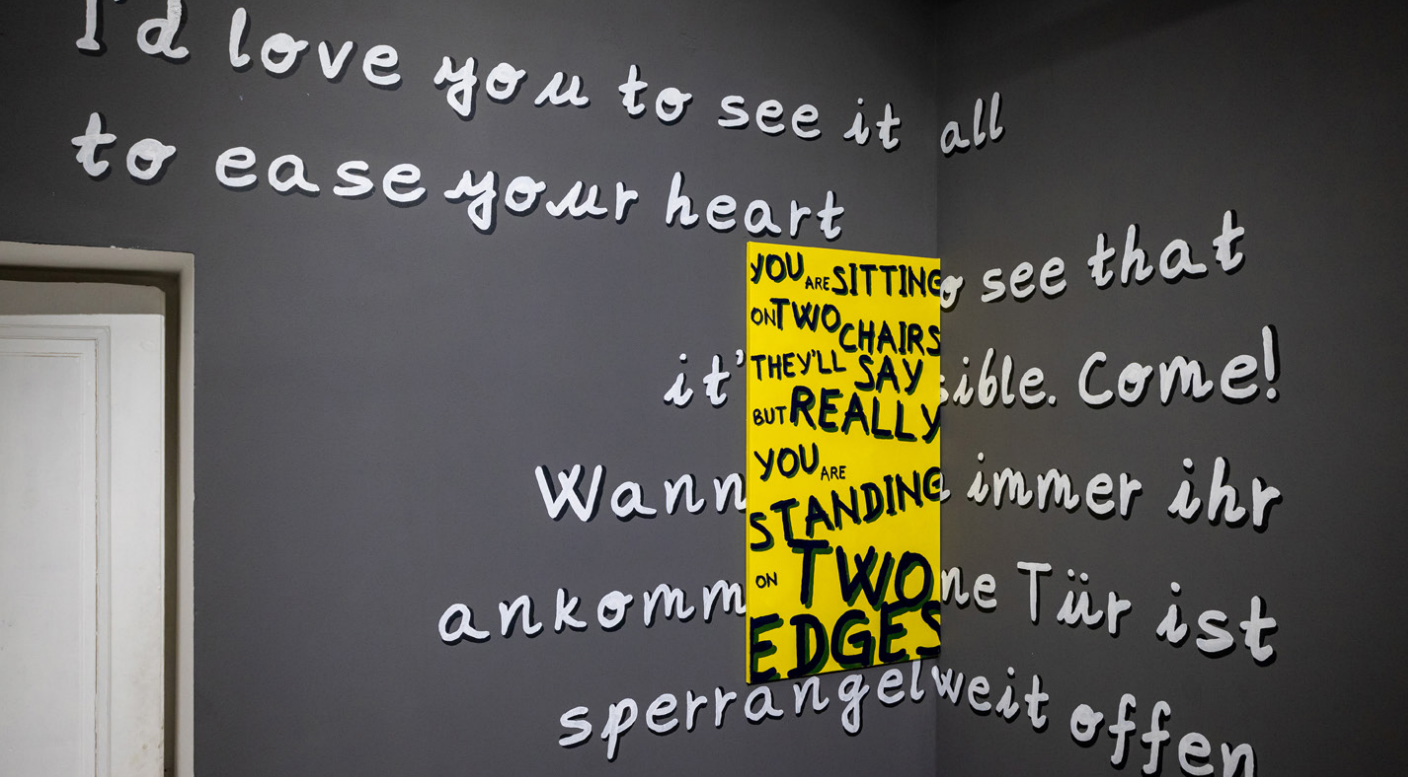 I'd love you to see it all
to ease your heart
see that
Come!
immer ihr
Tür ist
sperrangelweit offen
YOU ARE SITTING
ON TWO CHAIRS
THEY'LL SAY
BUT REALLY
YOU ARE
STANDING
ON TWO
EDGES